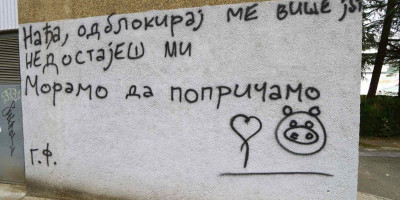 Нађа, одблокирај ме више јеб
недостајеш ми
Морамо да попричамо
Г.Ф.